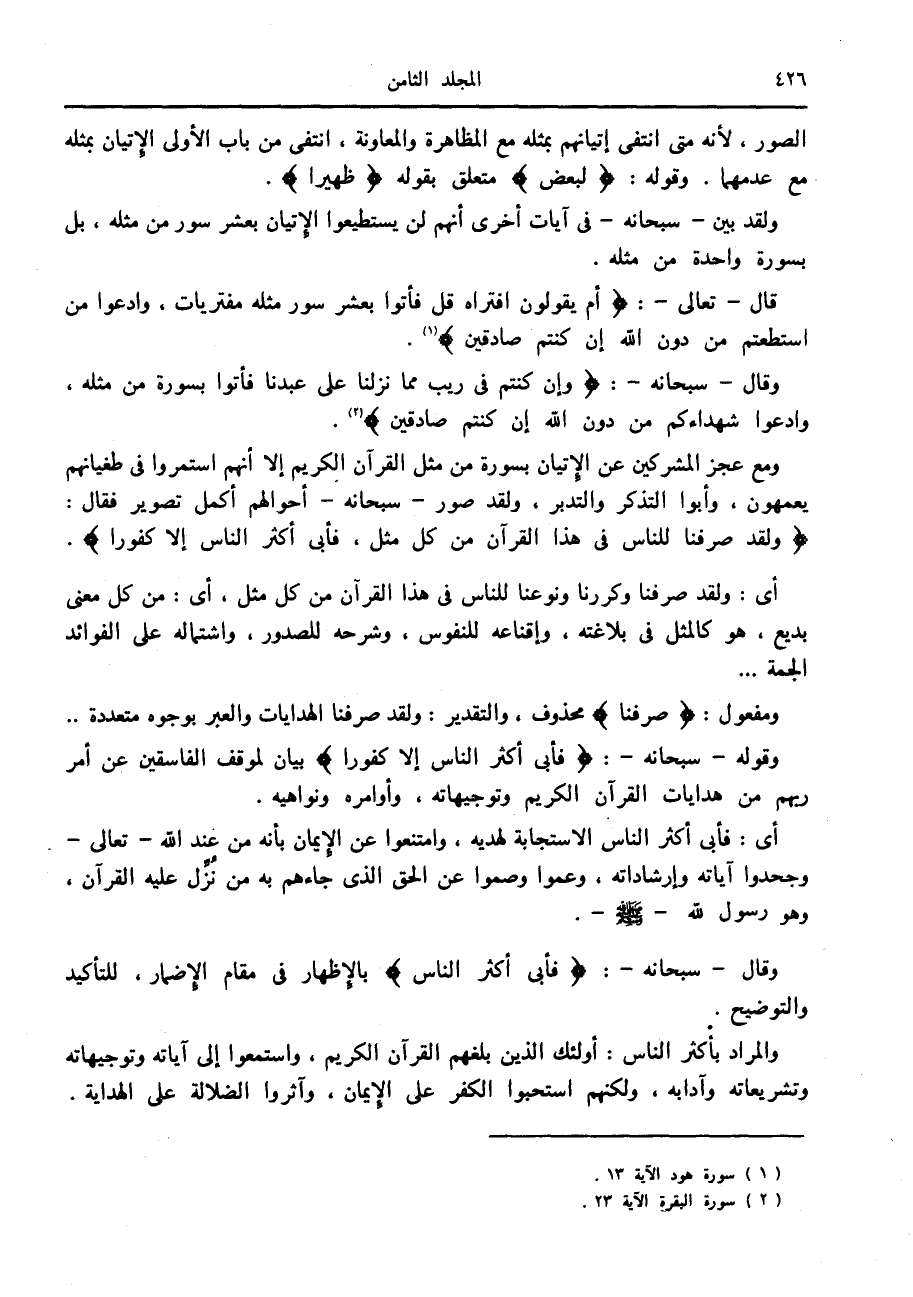 ٤٢٦ المجلد الثامن
الصور ، لأنه متى انتفى إتيانهم بمثله مع المظاهرة والمعاونة ، انتفى من باب الأولى الإتيان بمثله
مع عدمهما . وقوله : ﴿ لبعض ﴾ متعلق بقوله ﴿ ظهيرا ﴾ .
ولقد بين – سبحانه – فى آيات أخرى أنهم لن يستطيعوا الإتيان بعشر سور من مثله ، بل
بسورة واحدة من مثله .
قال – تعالى – : ﴿ أم يقولون افتراه قل فأتوا بعشر سور مثله مفتريات ، وادعوا من
استطعتم من دون الله إن كنتم صادقين ﴾(١) .
وقال – سبحانه – : ﴿ وإن كنتم فى ريب مما نزلنا على عبدنا فأتوا بسورة من مثله ،
وادعوا شهداءكم من دون الله إن كنتم صادقين ﴾(٢) .
ومع عجز المشركين عن الإتيان بسورة من مثل القرآن الكريم إلا أنهم استمروا فى طغيانهم
يعمهون ، وأبوا التذكر والتدبر ، ولقد صور – سبحانه – أحوالهم أكمل تصوير فقال :
﴿ ولقد صرفنا للناس فى هذا القرآن من كل مثل ، فأبى أكثر الناس إلا كفورا ﴾ .
أى : ولقد صرفنا وكررنا ونوعنا للناس فى هذا القرآن من كل مثل ، أى : من كل معنى
بديع ، هو كالمثل فى بلاغته ، وإقناعه للنفوس ، وشرحه للصدور ، واشتماله على الفوائد
الجمة ...
ومفعول : ﴿ صرفنا ﴾ محذوف ، والتقدير : ولقد صرفنا الهدايات والعبر بوجوه متعددة ..
وقوله – سبحانه – : ﴿ فأبى أكثر الناس إلا كفورا ﴾ بيان لموقف الفاسقين عن أمر
ربهم من هدايات القرآن الكريم وتوجيهاته ، وأوامره ونواهيه .
أى : فأبى أكثر الناس الاستجابة لهديه ، وامتنعوا عن الإيمان بأنه من عند الله – تعالى –
وجحدوا آياته وإرشاداته ، وعموا وصموا عن الحق الذى جاءهم به من نُزِّل عليه القرآن ،
وهو رسول لله – ﷺ – .
وقال – سبحانه – : ﴿ فأبى أكثر الناس ﴾ بالإظهار فى مقام الإضمار ، للتأكيد
والتوضيح .
والمراد بأكثر الناس : أولئك الذين بلغهم القرآن الكريم ، واستمعوا إلى آياته وتوجيهاته
وتشريعاته وآدابه ، ولكنهم استحبوا الكفر على الإيمان ، وآثروا الضلالة على الهداية .
( ١ ) سورة هود الآية ١٣ .
( ٢ ) سورة البقرة الآية ٢٣ .